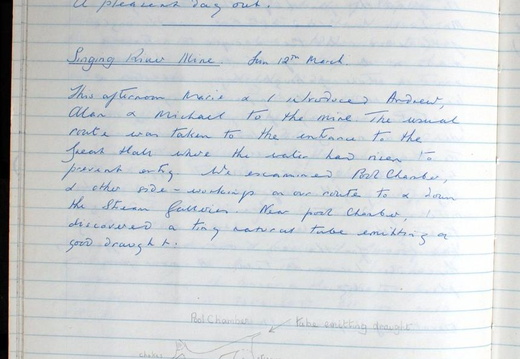 A pleasant day out.
Singing River Mine Sun 12th March
This afternoon Marie & I introduced Andrew,
Alan & Michael to the mine The usual
route was taken to the entrance to the
Great Hall where the water had risen to
prevent entry We examined Pool Chamber,
& other side-workings on our route to & down
the Stream Galleries. Near pool Chamber, I
discovered a tiny natural tube emitting a
good draught.
Pool Chamber tube emitting draught